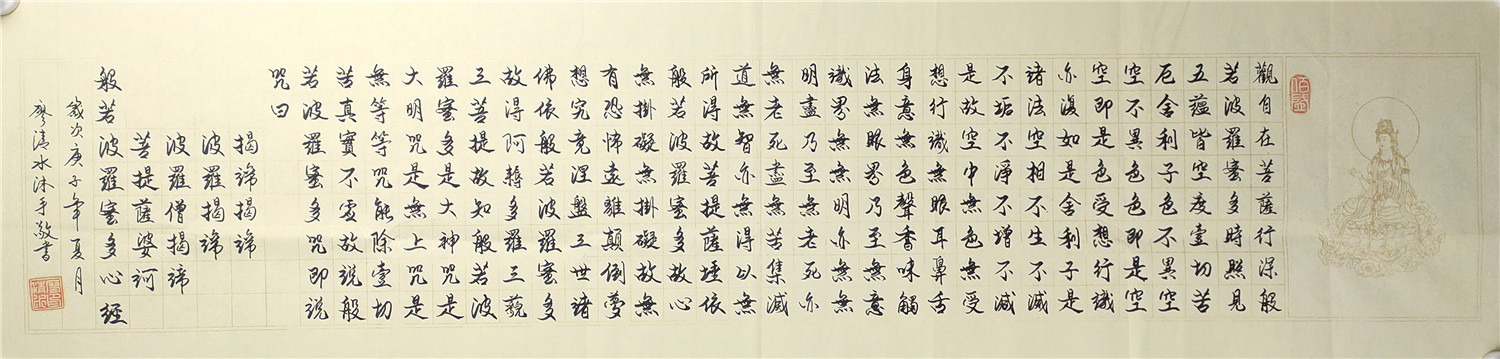 觀自在菩薩行深般
若波羅蜜多時照見
五蘊皆空度壹切苦
厄舍利子色不異空
空不異色色即是空
空即是色受想行識
亦復如是舍利子是
諸法空相不生不滅
不垢不淨不增不減
是故空中無色無受
想行識無眼耳鼻舌
身意無色聲香味觸
法無眼界乃至無意
識界無無明亦無無
明盡乃至無老死亦
無老死盡無苦集滅
道無智亦無得以無
所得故菩提薩埵依
般若波羅蜜多故心
無掛礙無掛礙故無
有恐怖遠離顛倒夢
想究竟涅盤三世諸
佛依般若波羅蜜多
故得阿耨多羅三藐
三菩提故知般若波
羅蜜多是大神咒是
大明咒是無上咒是
無等等咒能除壹切
苦真實不虛故說般
若波羅蜜多咒即說
咒曰
揭諦揭諦
波羅揭諦
波羅僧揭諦
菩提薩婆訶
般若波羅蜜多心經
歲次庚子年夏月
廖清水沐手敬書